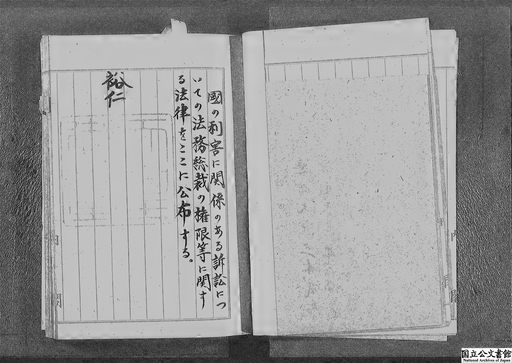 国の利害に関係のある訴訟につ
いての法務総裁の権限等に関す
る法律をここに公布する。
裕仁
国立公文書館
National Archives of Japan